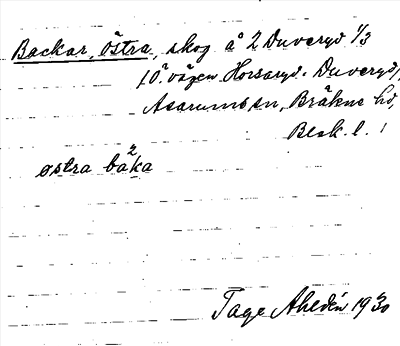 Backar, östra, skog å 2 Duveryd 1/3
10. vägen Horsaryd - Duveryd,
Asarums sn, Bräkne hd,
Blek. l.
östra bàka
Tage Ahldén 1930